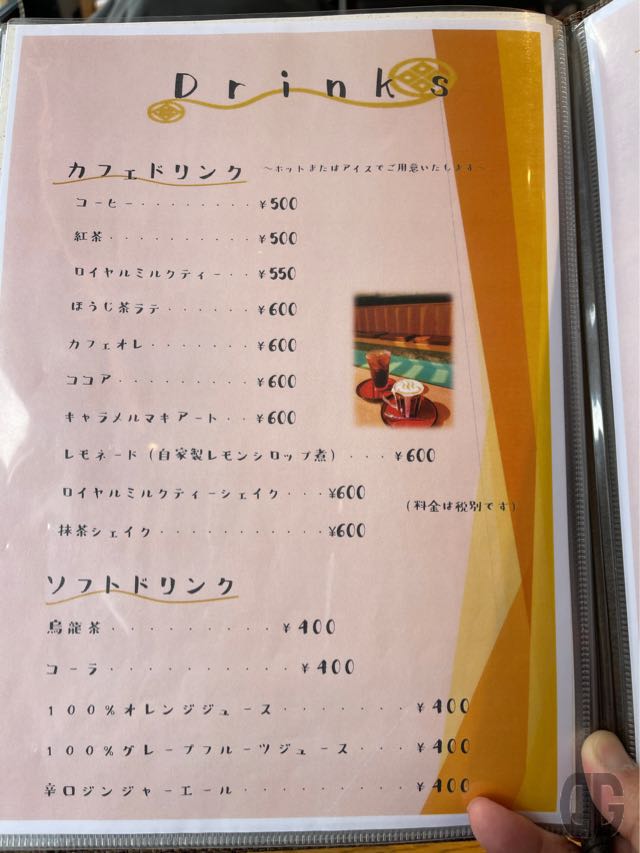 Drinks
カフェドリンク ～ホットまたはアイスでご用意いたします～
コーヒー・・・・・・・・¥500
紅茶・・・・・・・・・・¥500
ロイヤルミルクティー・・¥550
ほうじ茶ラテ・・・・・・¥600
カフェオレ・・・・・・・¥600
ココア・・・・・・・・・¥600
キャラメルマキアート・・¥600
レモネード（自家製レモンシロップ煮）・・・¥600
ロイヤルミルクティーシェイク・・・¥600
（料金は税別です）
抹茶シェイク・・・・・・・・・・・¥600
ソフトドリンク
烏龍茶・・・・・・・・・・¥400
コーラ・・・・・・・・・・¥400
100％オレンジジュース・・・・・・・・¥400
100％グレープフルーツジュース・・・¥400
辛口ジンジャーエール・・・・・・・・・¥400